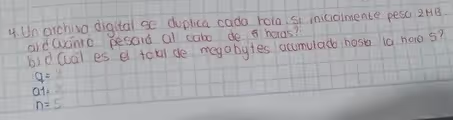 4. Un archivo digital se duplica cada hora, si inicialmente pesa 2MB
a) d Cuánto pesará al cabo de 8 horas?
b) d Cual es el total de megabytes acumulado hasta la hora 5?
q=
a1=
n= 5